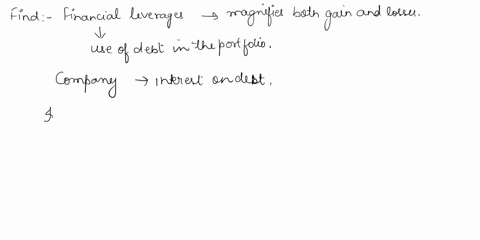 Find:- Financial leverages → magnifies both gain and losses.
↓
use of debt in the portfolio.
Company → interest on debt.